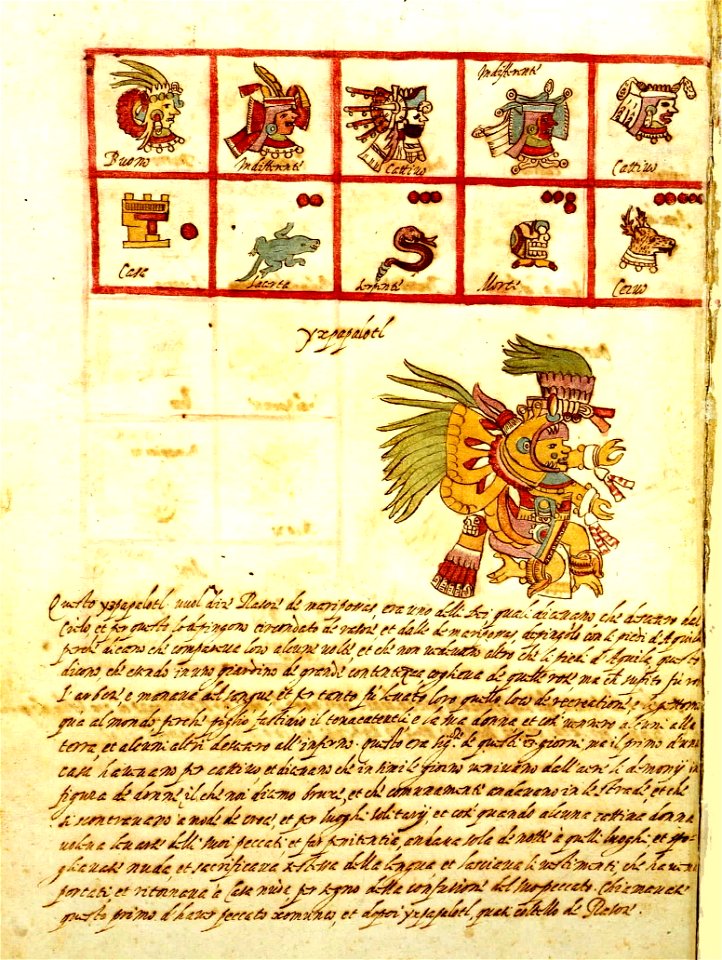 Indifferente
Buono Indifferente Cattivo Cattivo
Casa Lacerta Serpente Morte Ceruo
yxpapalotl
Questo yxpapalotl. uuol dire Rasore de mariposas era uno delli Dei quali diceuano che descasero dal
Cielo et per questo lo depingono circondato de rasore et d'alle de mariposas, depingolo con li piedi d'Aquila
perche dicono che compareua loro alcune uolte, et che non uedeuano altro che li piedi d'Aquila, questo
dicono che essendo in uno giardino de grande contentezza coglieua de quelle rose ma che subito si
l'arbore, e manaua del sangue et per tanto fu leuato loro quello loco de recreatione,
qua al mondo perche si fastidio il tonacateuctli e la sua donna et cosi uennero alcuni alla
terra, et alcuni altri descesero all'inferno. questo era sigre. de questi 13 giorni ma il primo d'una
casa haueuano per cattiuo et diceuano che in simile giorno ueniuano dall'aere li demonij in
figura de donne, il che noi diciamo bruxe, et che comunamente andauano in le strade, et che
si incontrauano a modo de croce, et per luoghi solitarij et cosi quando alcuna cattiua donna
uoleua leuarse delli suoi peccati et far penitentia, andaua sola de notte à quelli luoghi, et spo-
gliauase nuda et sacrificaua se stessa della lengua et lassaua li uestimenti, che haueua
portati et ritornaua à casa nuda per segno della confusione del suo peccato. Chiamauase
questo primo d'hauer peccato xomunco, et dopoi yxpapalotl, quasi coltello de Rasore.